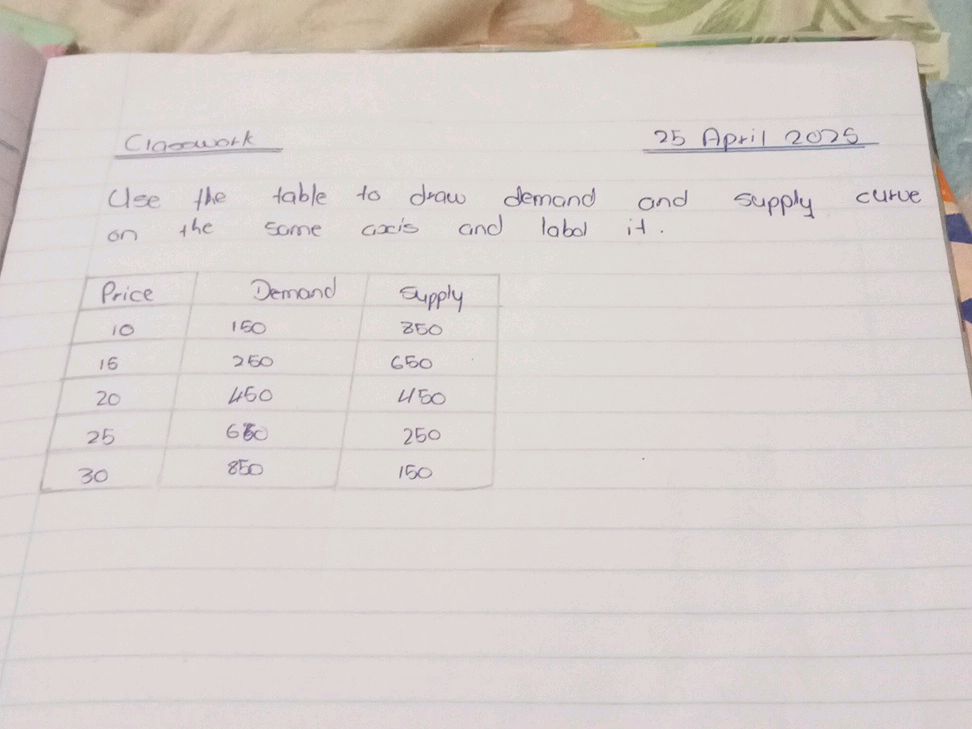 Classwork 25 April 2025
Use the table to draw demand and supply curve
on the same axis and label it.
Price Demand Supply
10 150 850
15 250 650
20 450 450
25 650 250
30 850 150